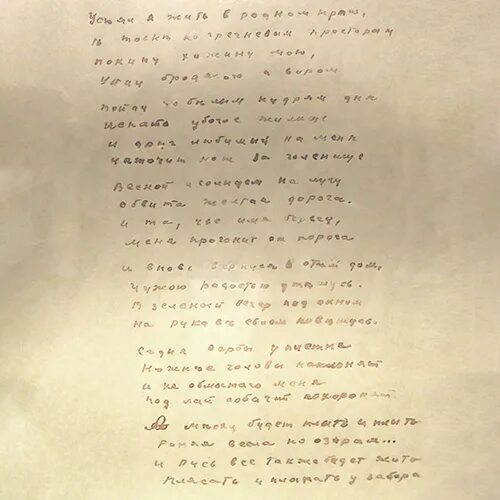 Устал я жить в родном краю,
В тоске по гречневым просторам
Покину хижину мою,
Уйду бродягою и вором
Пойду по белым кудрям дня
Искать убогое жилище
И друг любимый на меня
Наточит нож за голенище
Весной и солнцем на лугу
Обвита желтая дорога.
И та, чье имя берегу,
Меня прогонит от порога
И вновь вернуся в отчий дом,
Чужою радостью утешусь.
В зеленый вечер под окном
На рукаве своем повешусь.
Седые вербы у плетня
Нежнее головы наклонят
И не обмытого меня
Под лай собачий похоронят
А месяц будет плыть и плыть
Роняя весла по озерам...
И Русь все также будет жить
Плясать и плакать у забора